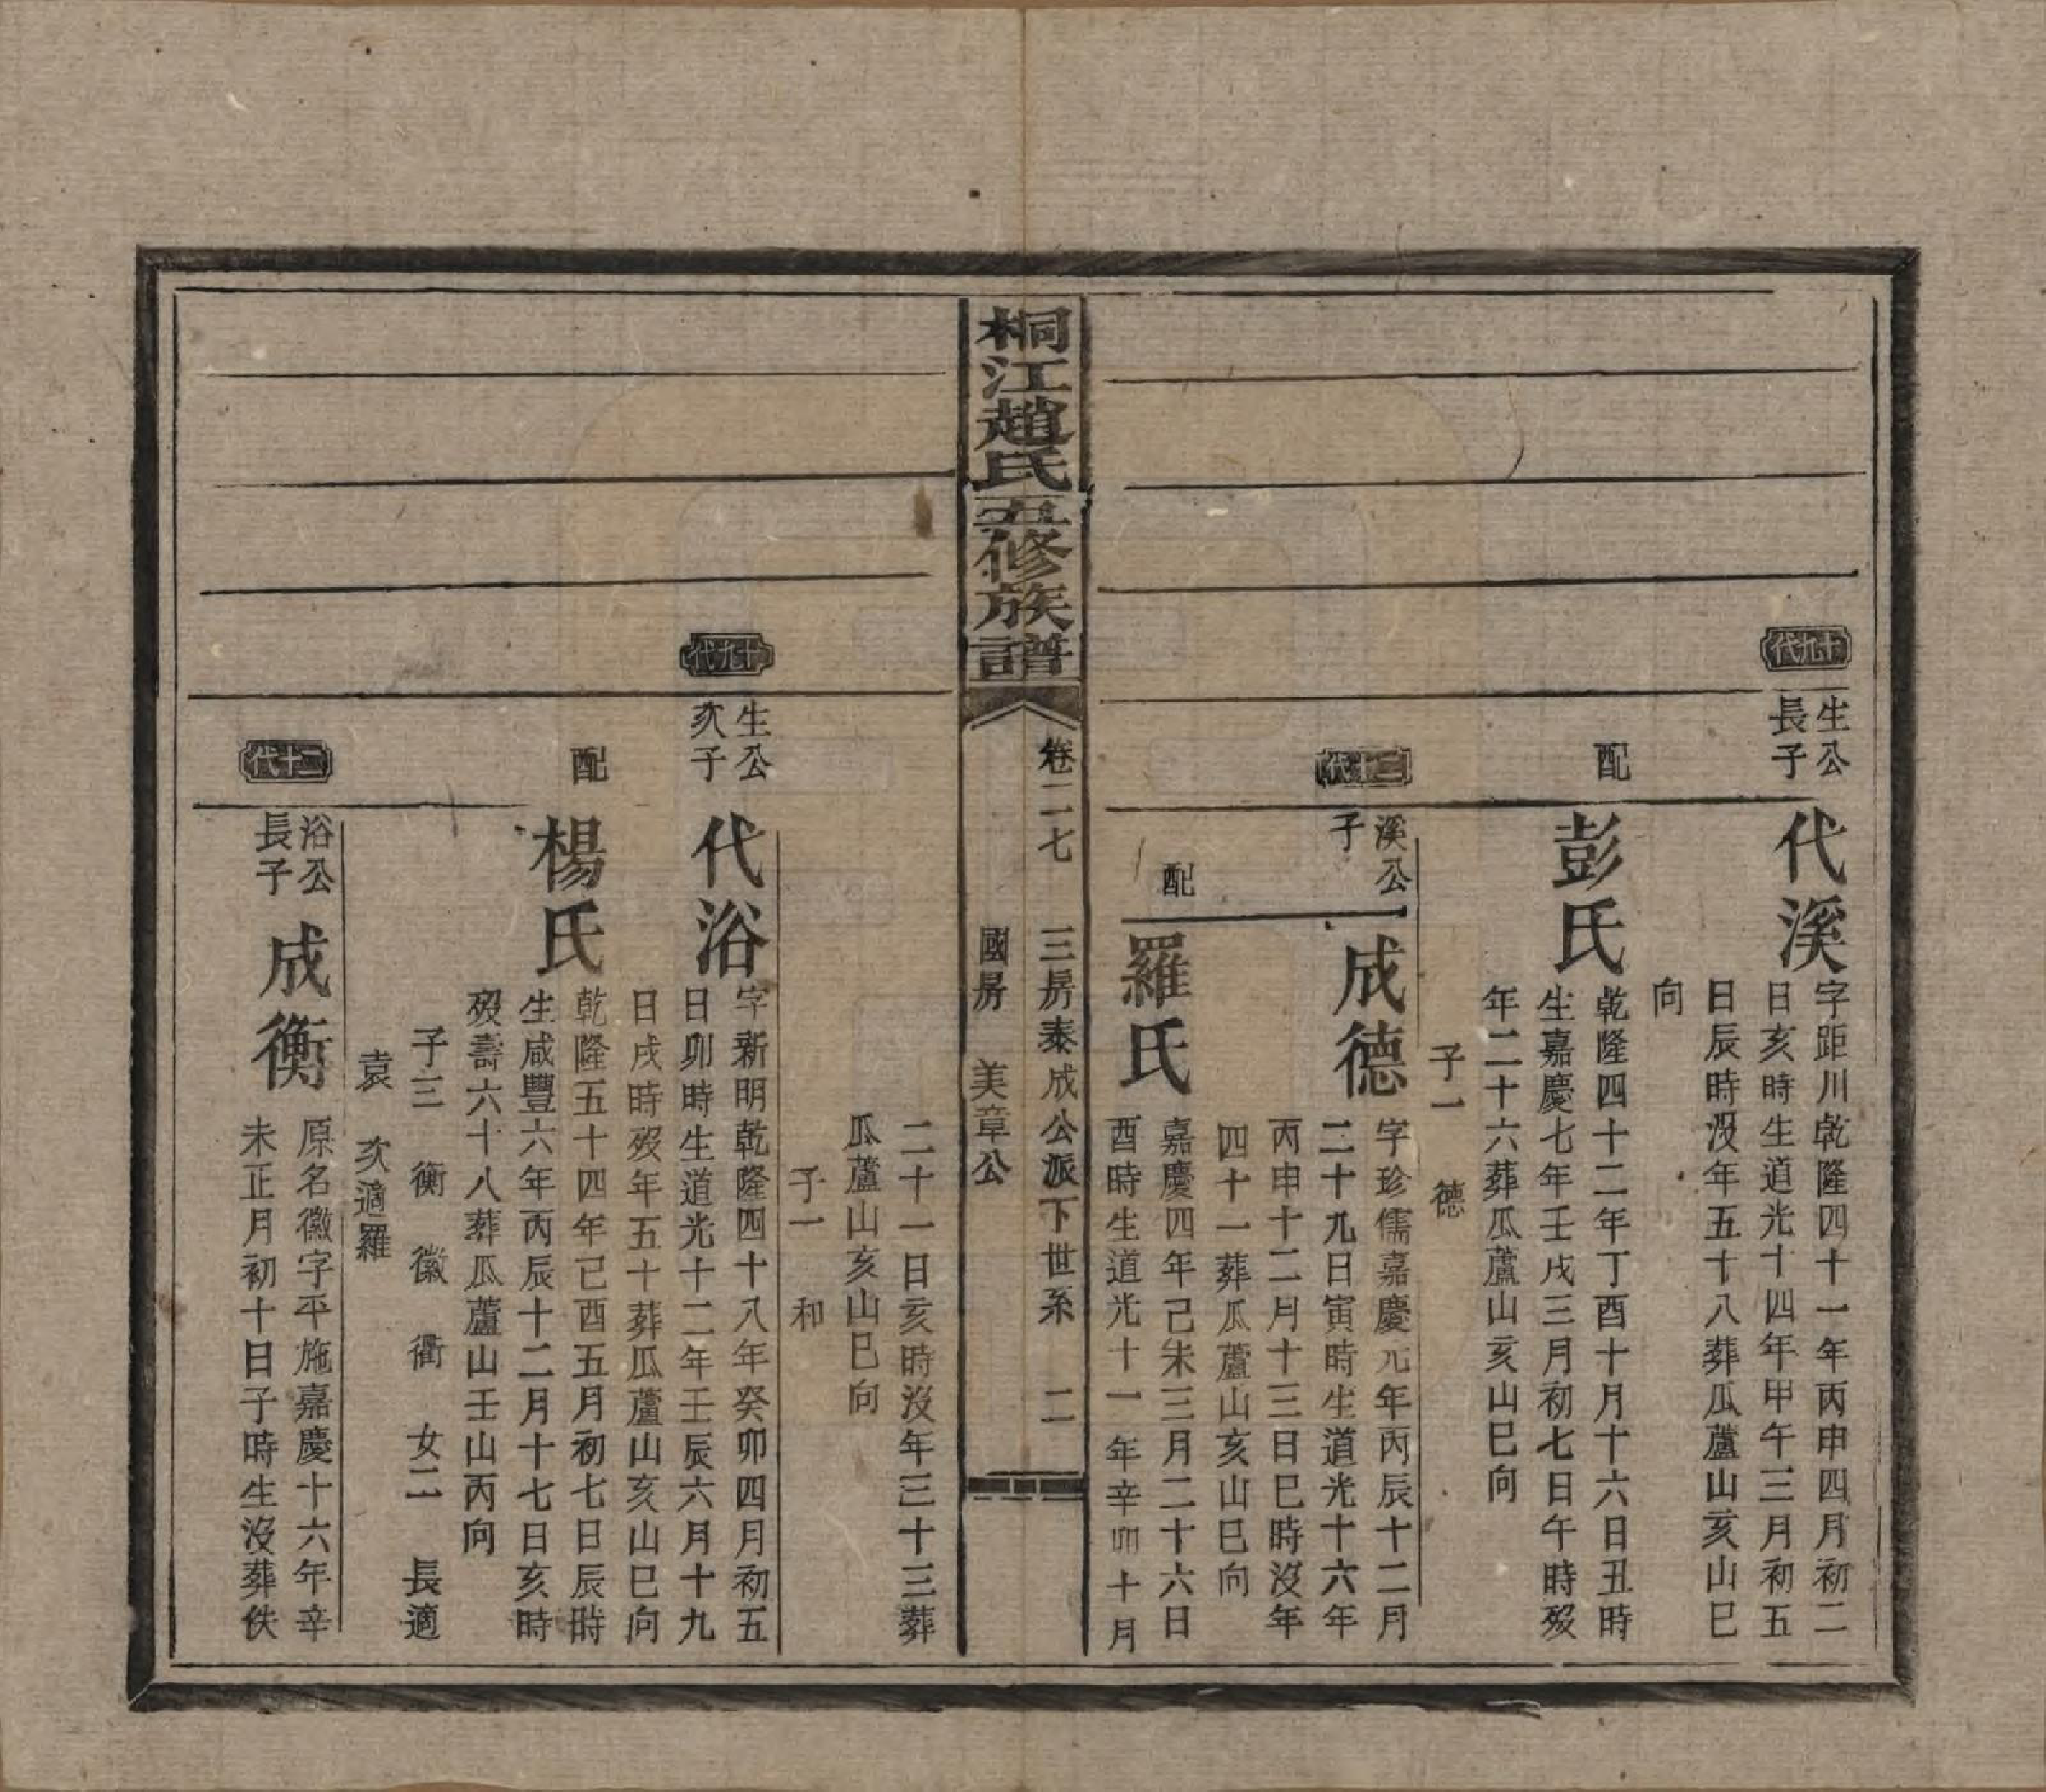 十九代
生公
長子
代溪
字距川乾隆四十一年丙申四月初二
日亥時生道光十四年甲午三月初五
日辰時沒年五十八葬瓜蘆山亥山巳
向
配
彭氏
乾隆四十二年丁酉十月十六日丑時
生嘉慶七年壬戌三月初七日午時歿
年二十六葬瓜蘆山亥山巳向
子一 德
二十代
溪公
子
成德
字珍儒嘉慶元年丙辰十二月
二十九日寅時生道光十六年
丙申十二月十三日巳時沒年
四十一葬瓜蘆山亥山巳向
配
羅氏
嘉慶四年己未三月二十六日
酉時生道光十一年辛卯十月
桐江趙氏五修族譜
卷二七 三房泰成公派下世系 二
國房 美章公
二十一日亥時沒年三十三葬
瓜蘆山亥山巳向
子一 和
十九代
生公
次子
代浴
字新明乾隆四十八年癸卯四月初五
日卯時生道光十二年壬辰六月十九
日戌時歿年五十葬瓜蘆山亥山巳向
配
楊氏
乾隆五十四年己酉五月初七日辰時
生咸豐六年丙辰十二月十七日亥時
歿壽六十八葬瓜蘆山壬山丙向
子三 衡 徽 衢 女二 長適
袁 次適羅
二十代
浴公
長子
成衡
原名徽字平施嘉慶十六年辛
未正月初十日子時生沒葬佚